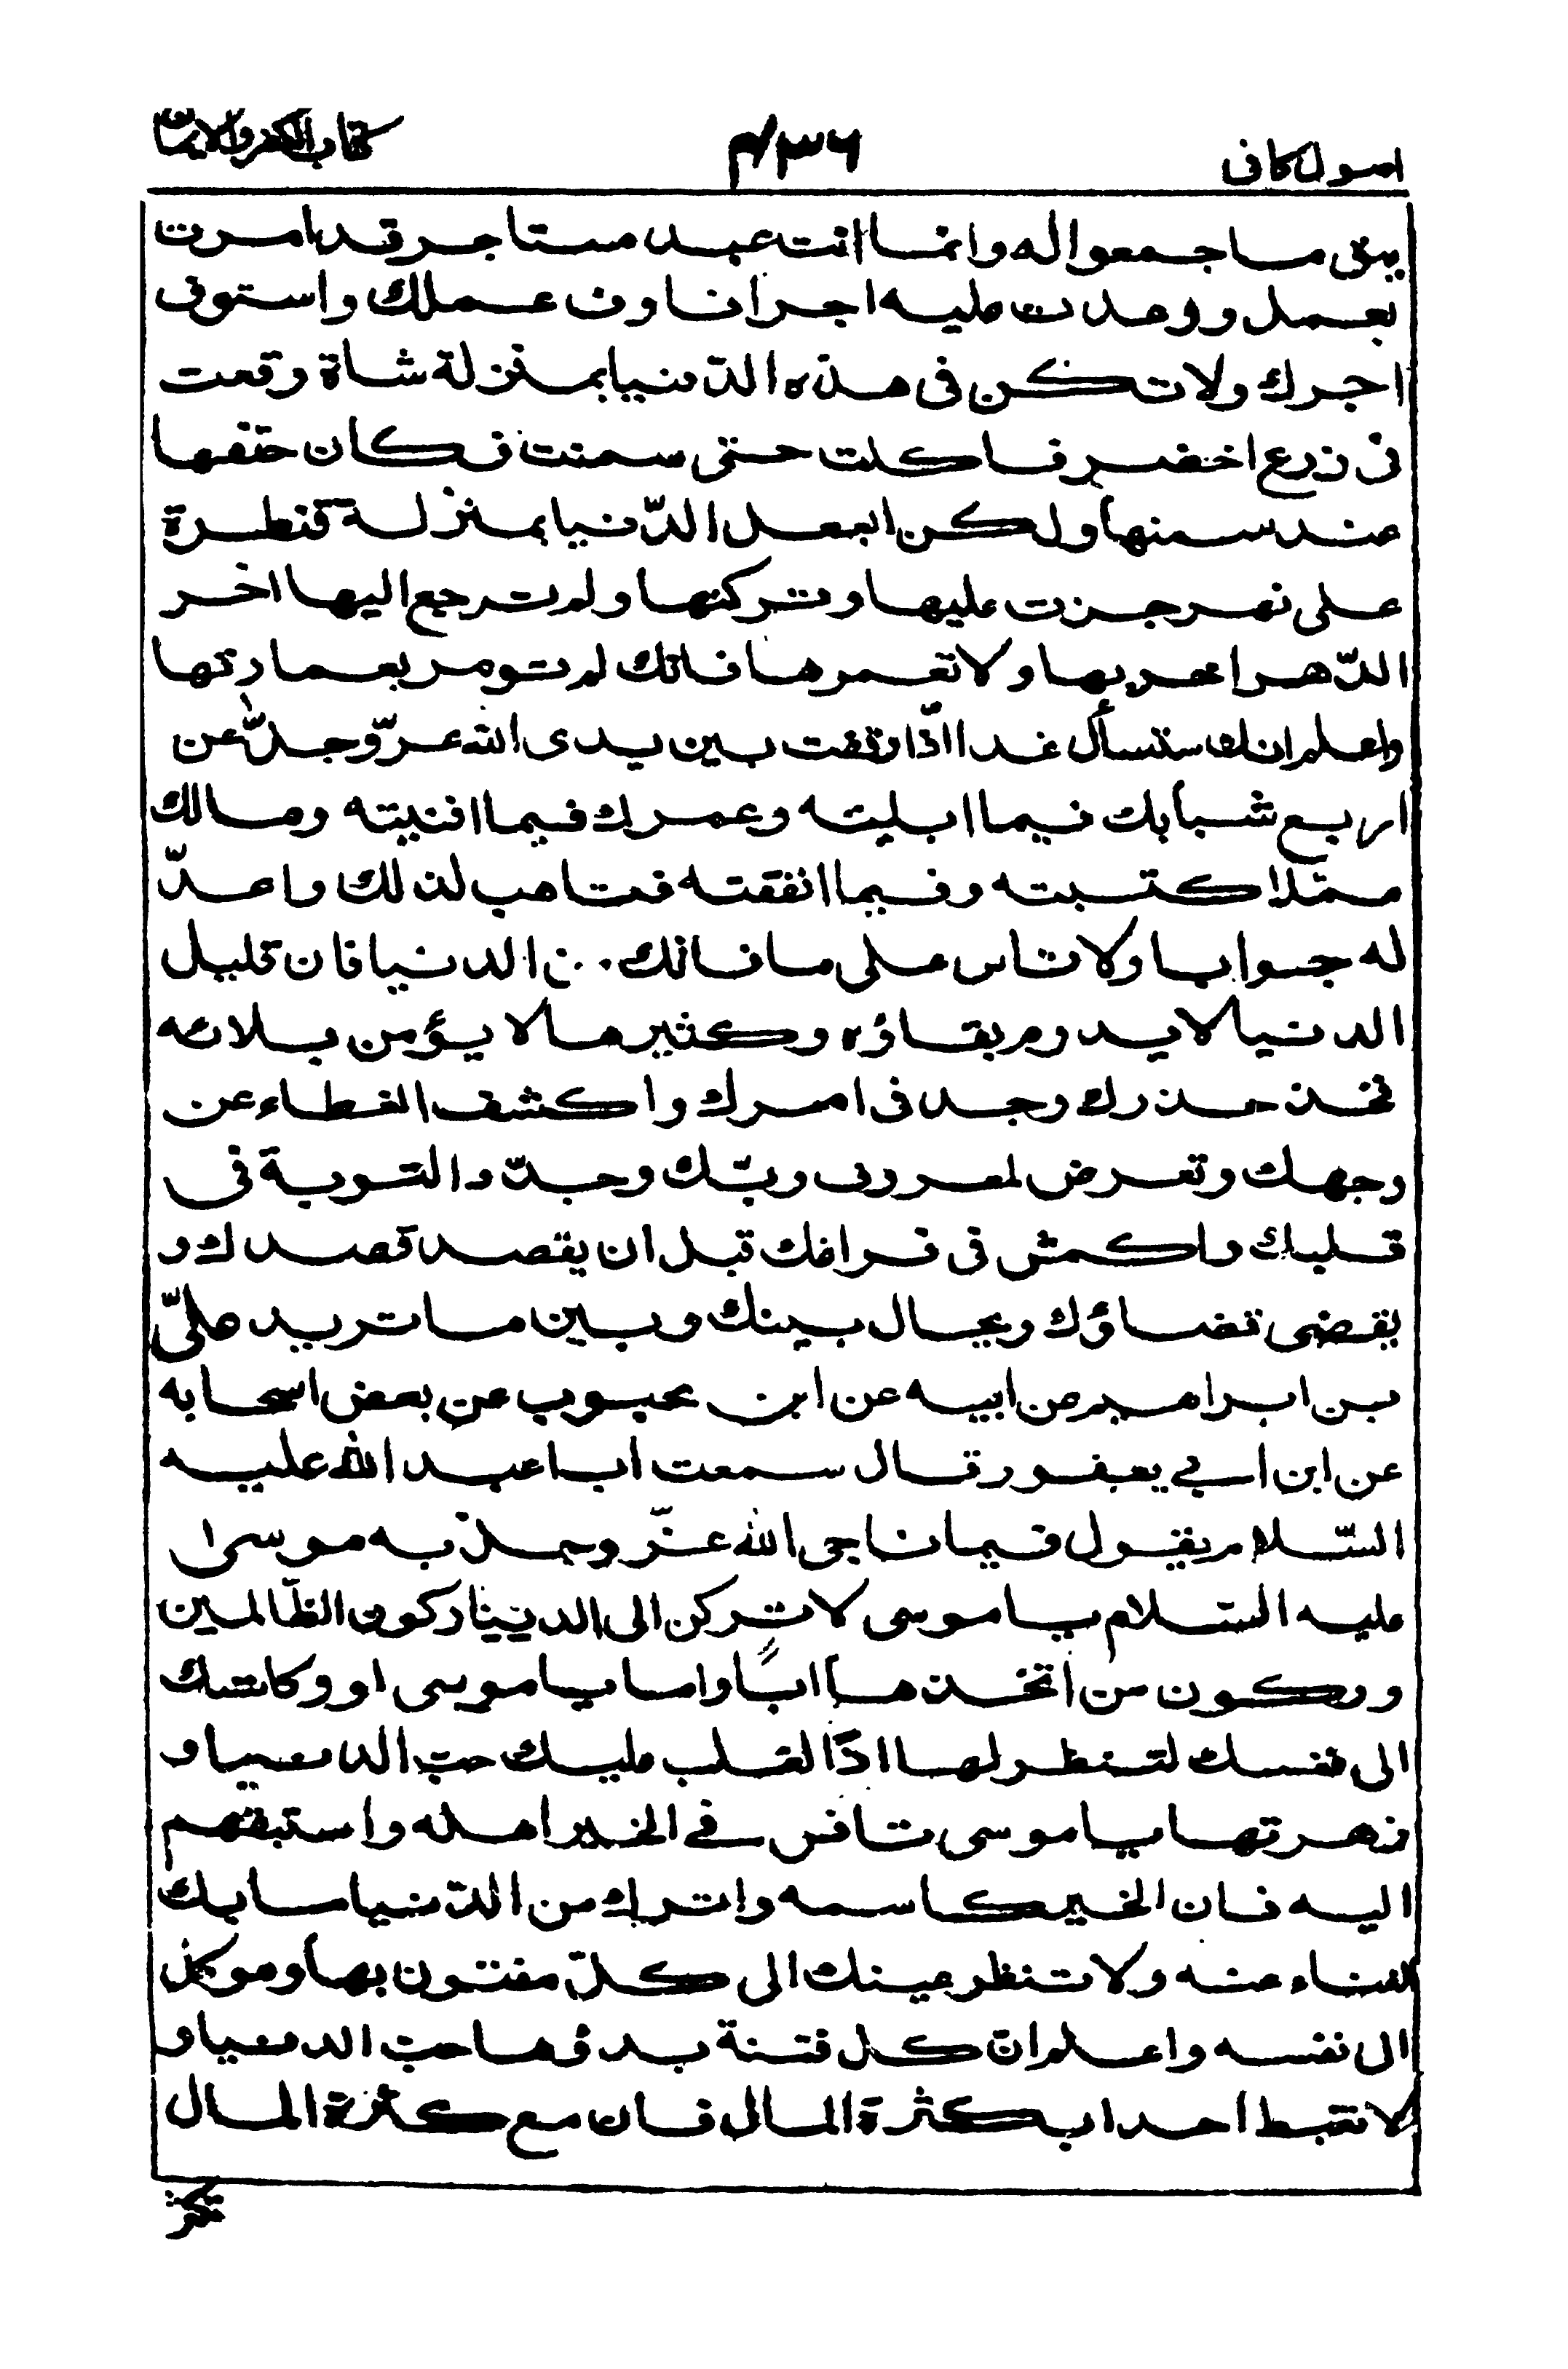 اصول کافی
۴/۳۶
کتاب الکفر والایمان
یبق ما جمعوا له وانما انت عبد مستاجر قد امرت
بعمل ووعدت علیه اجرا فاوف عملك واستوف
اجرك ولا تکن فی هذه الدّنیا بمنزلة شاة وقعت
فی زرع اخضر فاکلت حتی سمنت فکان حتفها
عند سمنها ولکن اجعل الدّنیا بمنزلة قنطرة
علی نهر جزت علیها وترکتها ولم ترجع الیها اخر
الدّهر اخربها ولا تعمرها فانك لم تومر بعمارتها
واعلم انك ستسأل غدا اذا وقفت بین یدی الله عزّ وجلّ عن
اربع شبابك فیما ابلیته وعمرك فیما افنیته ومالك
ممّا اکتسبته وفیما انفقته فتاهب لذلك واعدّ
له جوابا ولا تاس علی ما فاتك من الدنیا فان قلیل
الدنیا لا یدوم بقاؤه وکثیرها لا یؤمن بلائه
فخذ حذرك وجد فی امرك واکشف الغطاء عن
وجهك وتعرض لمعروف ربّك وجدّد التوبة فی
قلبك واکمش فی فراغك قبل ان یقصد قصدك و
یقضی قضاؤك ویحال بینك وبین ما ترید علیّ
بن ابراهیم عن ابیه عن ابن محبوب عن بعض اصحابه
عن ابن ابی یعفور قال سمعت ابا عبد الله علیه
السّلام یقول فیما ناجی الله عزّ وجل به موسی
علیه السّلام یا موسی لا ترکن الی الدنیا رکون الظّالمین
ورکون من اتخذها اباً واما یا موسی لو وکلتك
الی نفسك لتنظر لها اذًا لغلب علیك حبّ الدنیا و
زهرتها یا موسی نافس فی الخیر اهله واستبقهم
الیه فان الخیر کاسمه واترك من الدّنیا ما بك
الغناء عنه ولا تنظر عینك الی کلّ مفتون بها وموکل
الی نفسه واعلم انّ کل فتنة بدؤها حبّ الدنیا و
لا تغبط احدا بکثرة المال فان مع کثرة المال
تکثر